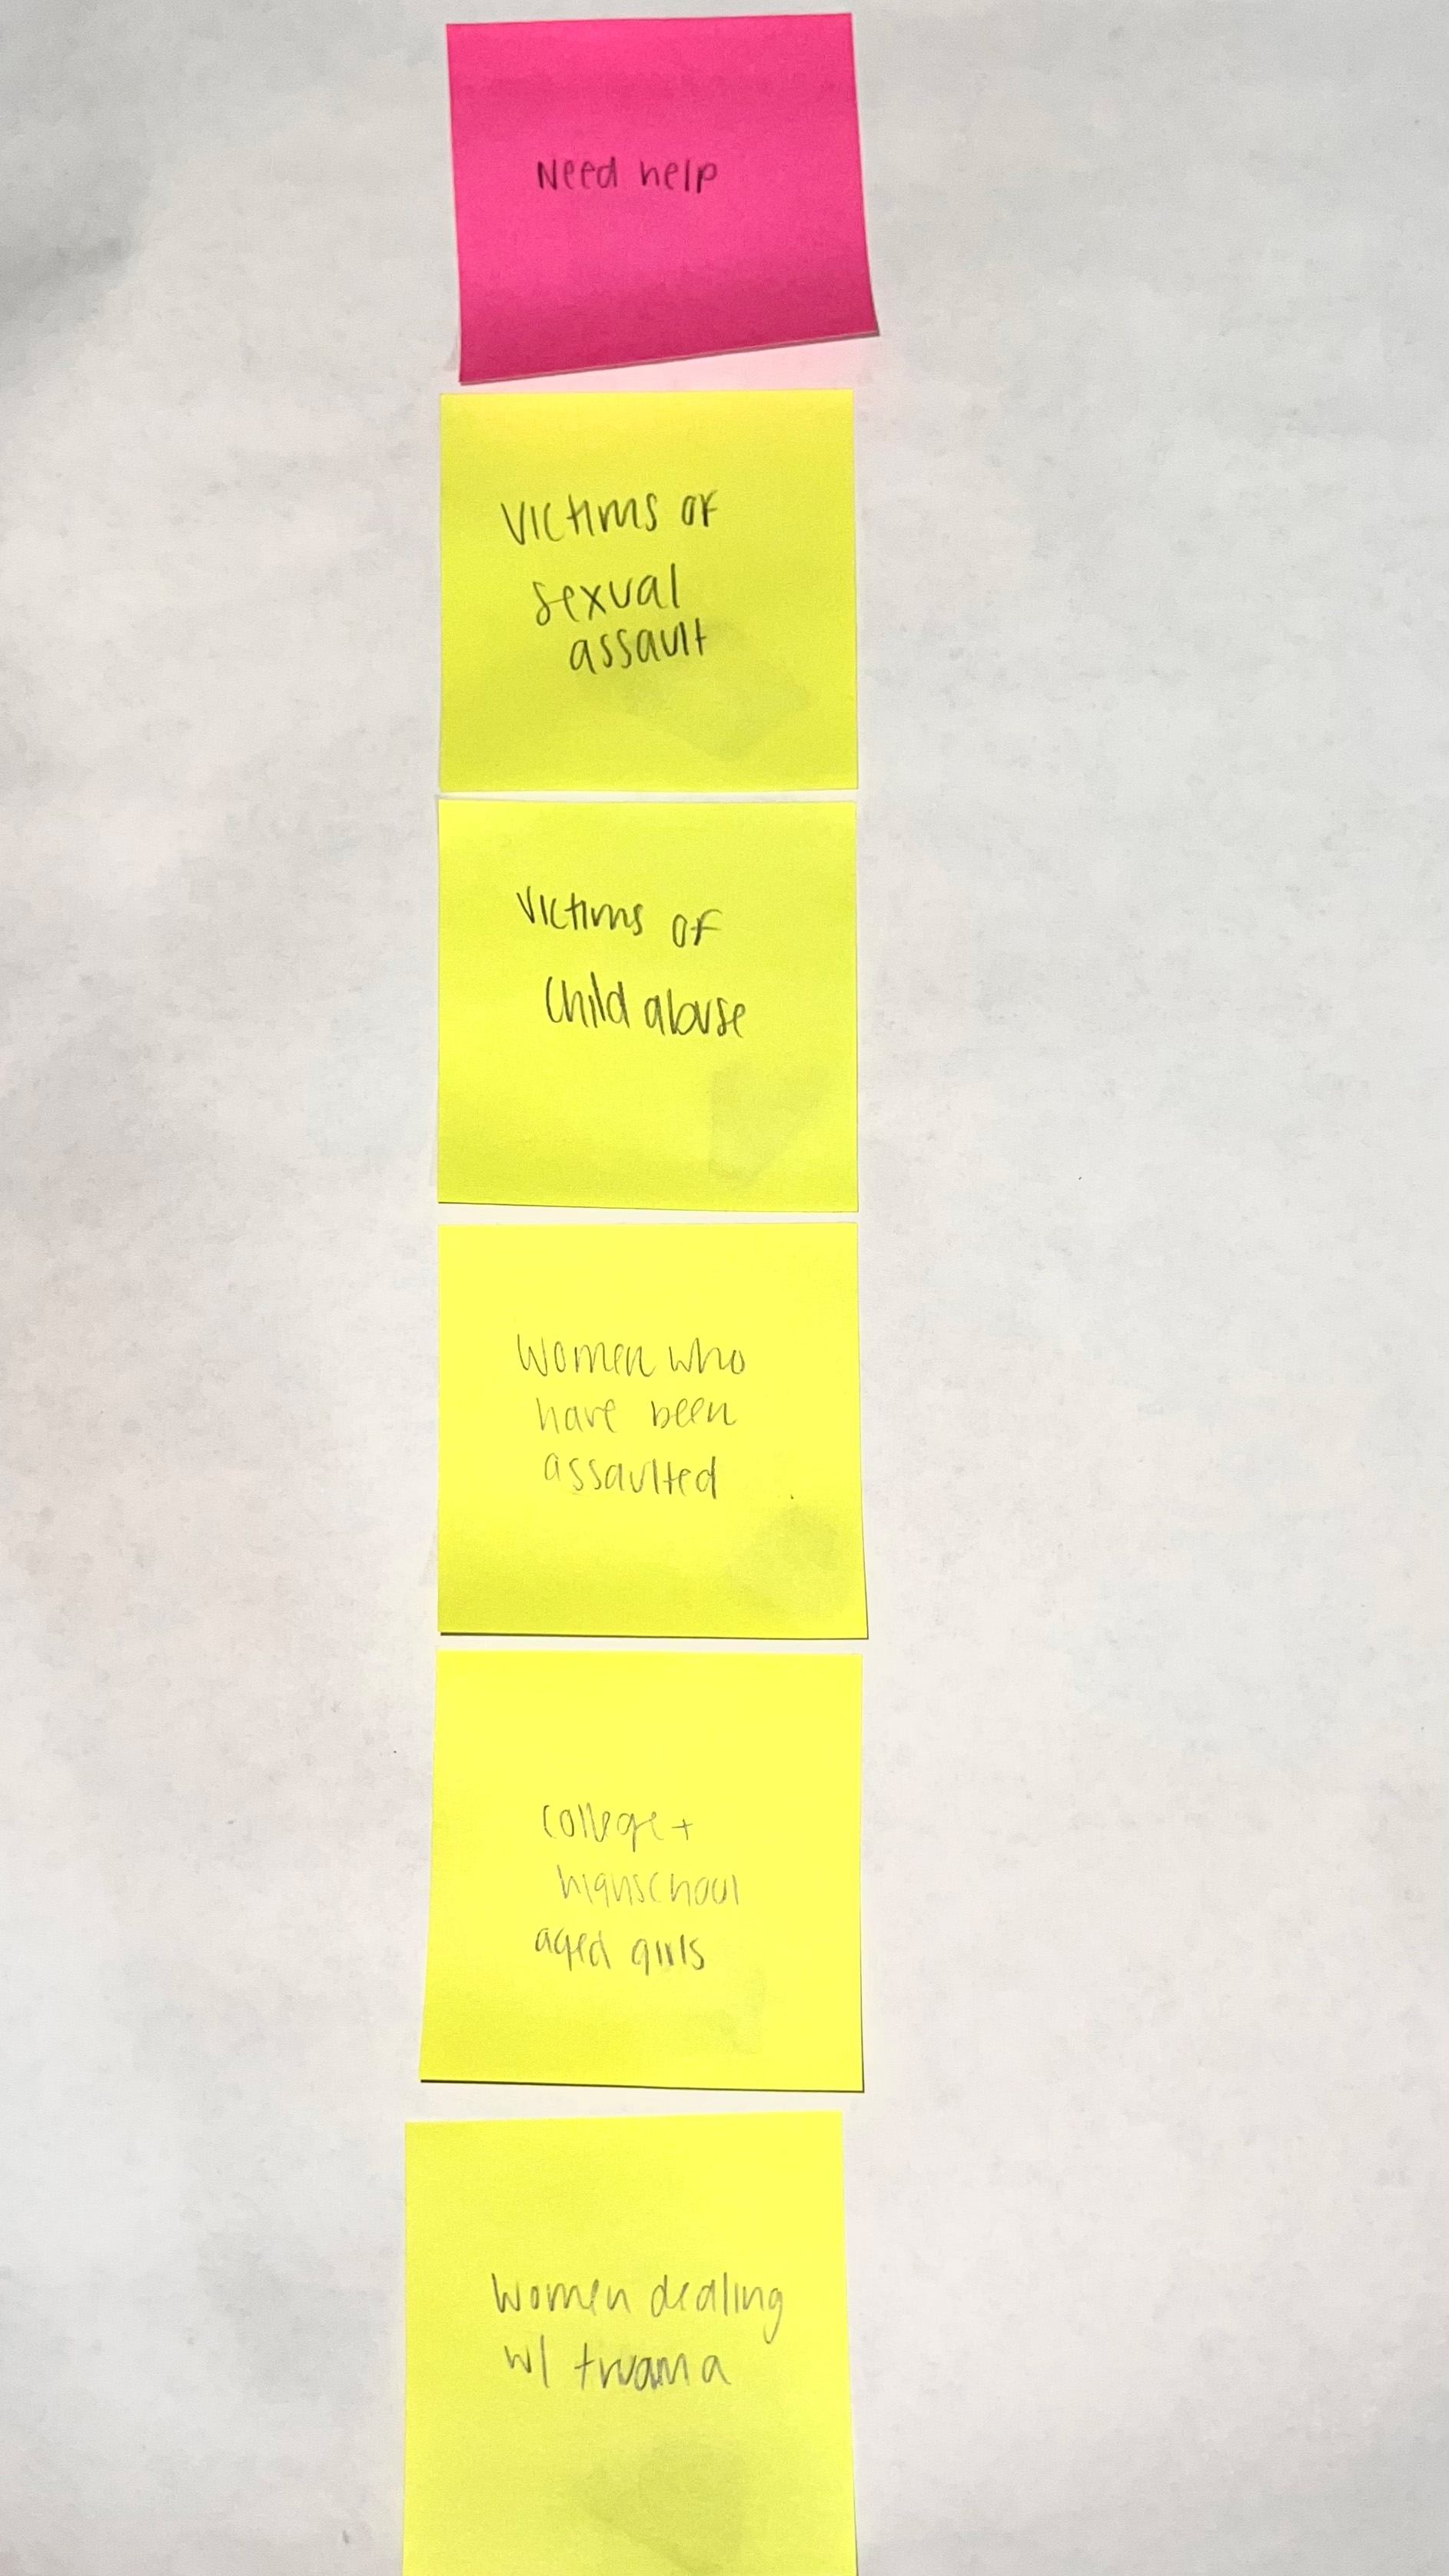 Need help
Victims of
sexual
assault
Victims of
Child abuse
Women who
have been
assaulted
College +
highschool
aged girls
Women dealing
w/ truama